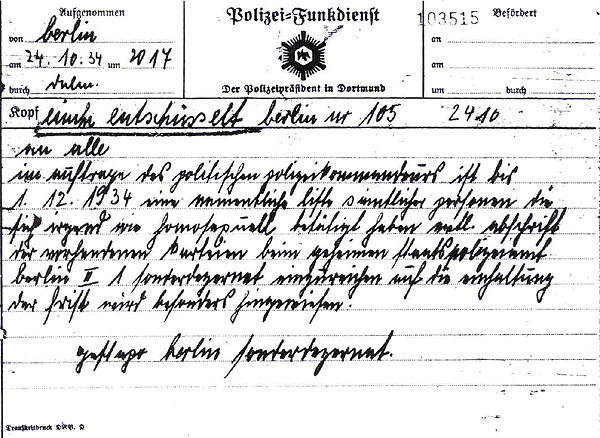 Aufgenommen
Polizei=Funkdienst
103515
Befördert
von berlin
am 24.10.34 um 2017
durch
an
am um
durch
Der Polizeipräsident in Dortmund
Kopf entschüsselt berlin nr 105 2410
an alle
im auftrage des politischen polizeikommandeurs ist bis
1.12.1934 eine namentliche liste sämtlicher personen die
sich irgend wie homosexuell betätigt haben evtl. abschrift
der vorhandenen karteien beim geheimen staatspolizeiamt
berlin II 1 sonderdezernat einzureichen auf die einhaltung
der frist wird besonders hingewiesen.
gestapo berlin sonderdezernat.